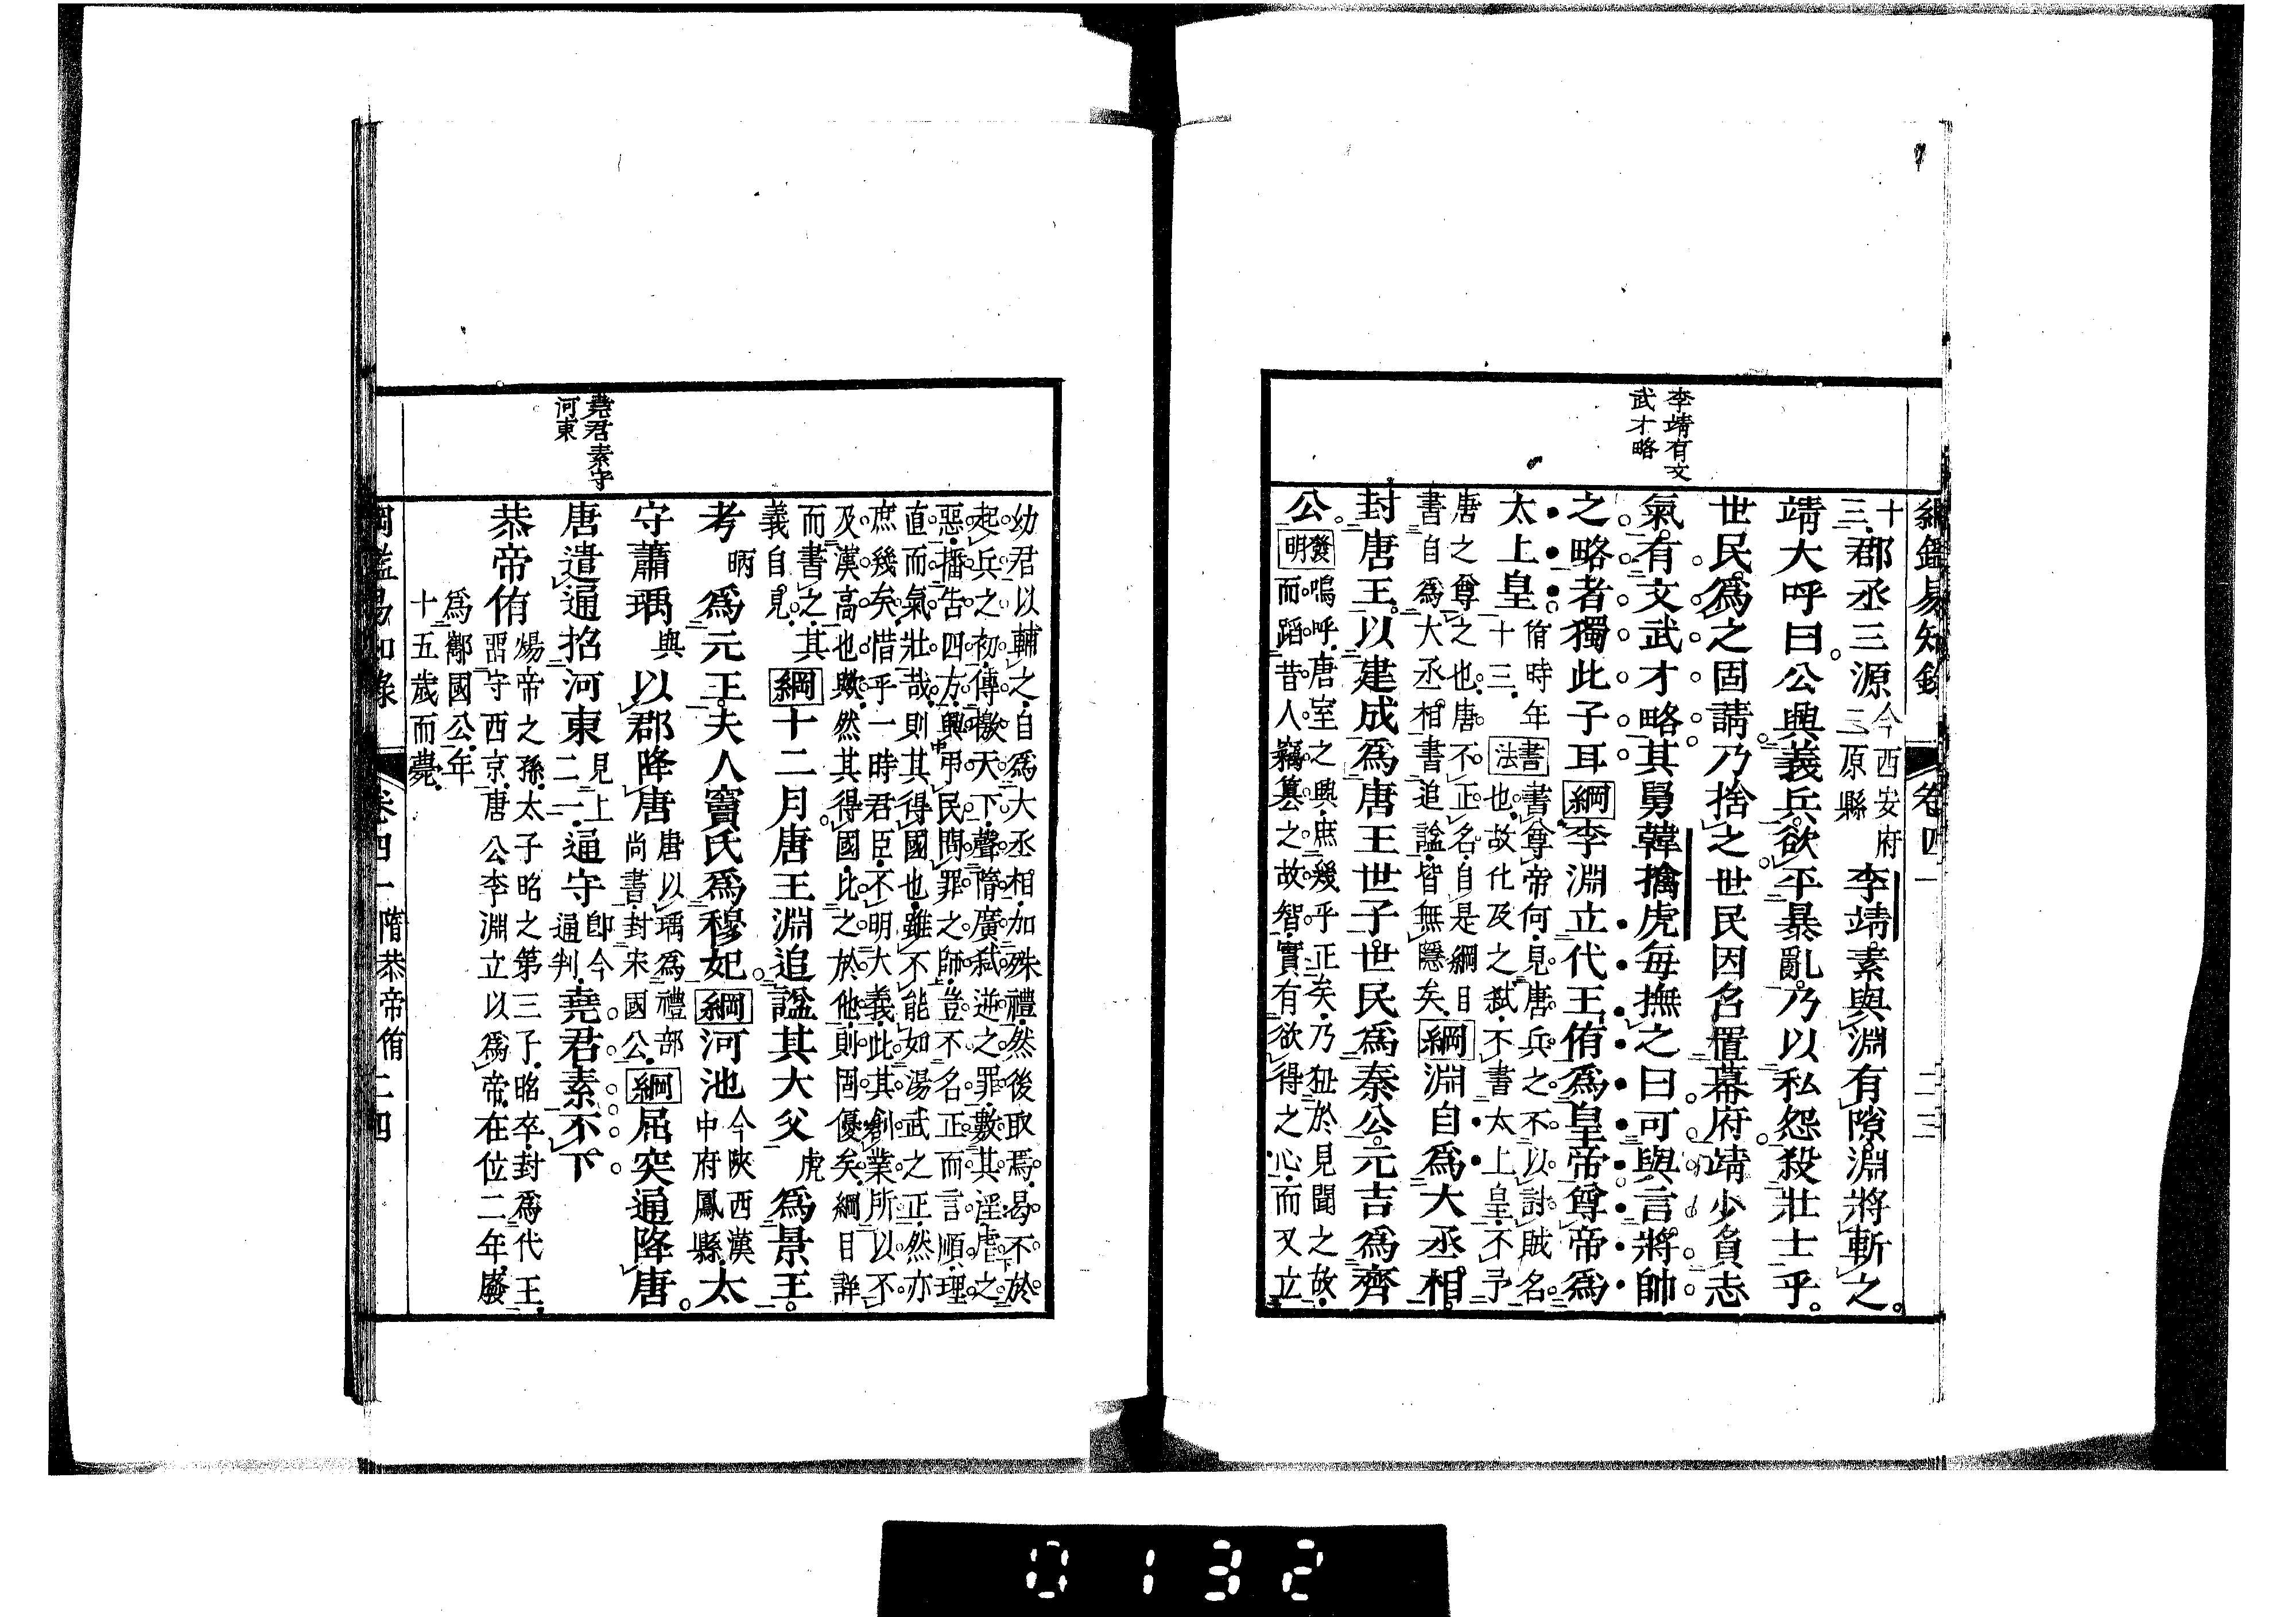 綱鑑易知錄 卷四一 二三
李靖有文
武才略
十三郡丞三源今西安府三原縣李靖素與淵有隙淵將斬之
靖大呼曰公興義兵欲平暴亂乃以私怨殺壯士乎
世民爲之固請乃捨之世民因召置幕府靖少負志
氣有文武才略其舅韓擒虎每撫之曰可與言將帥
之略者獨此子耳綱李淵立代王侑爲皇帝尊帝爲
太上皇侑時年十三書法書尊帝何見唐兵之不以討賊名也故化及之弑不書太上皇不予
唐之尊之也唐不正名自是綱目
書自爲大丞相書追諡皆無隱矣綱淵自爲大丞相
封唐王以建成爲唐王世子世民爲秦公元吉爲齊
公發明嗚呼唐室之興庶幾乎正矣乃狃於見聞之故
而蹈昔人竊篡之故智實有欲得之心而又立
幼君以輔之自爲大丞相加殊禮然後取焉曷不於
起兵之初傳檄天下聲隋廣弑逆之罪數其淫虐之
惡播告四方興甲民問罪之師豈不名正而言順理
直而氣壯哉則其得國也雖不能如湯武之正然亦
庶幾矣惜乎一時君臣不明大義此其創業所以不
及漢高也歟然其得國比之於他則固優矣綱目詳
而書之其
義自見綱十二月唐王淵追諡其大父虎爲景王
考昞爲元王夫人竇氏爲穆妃綱河池今陝西漢中府鳳縣太
守蕭瑀與以郡降唐唐以瑀爲禮部尚書封宋國公綱屈突通降唐
堯君素守
河東
唐遣通招河東見上二二通守卽今通判堯君素不下
恭帝侑煬帝之孫太子昭之第三子昭卒封爲代王
畱守西京唐公李淵立以爲帝在位二年廢
爲酅國公年
十五歲而薨
綱鑑易知錄 卷四一 隋恭帝侑 二四
0132